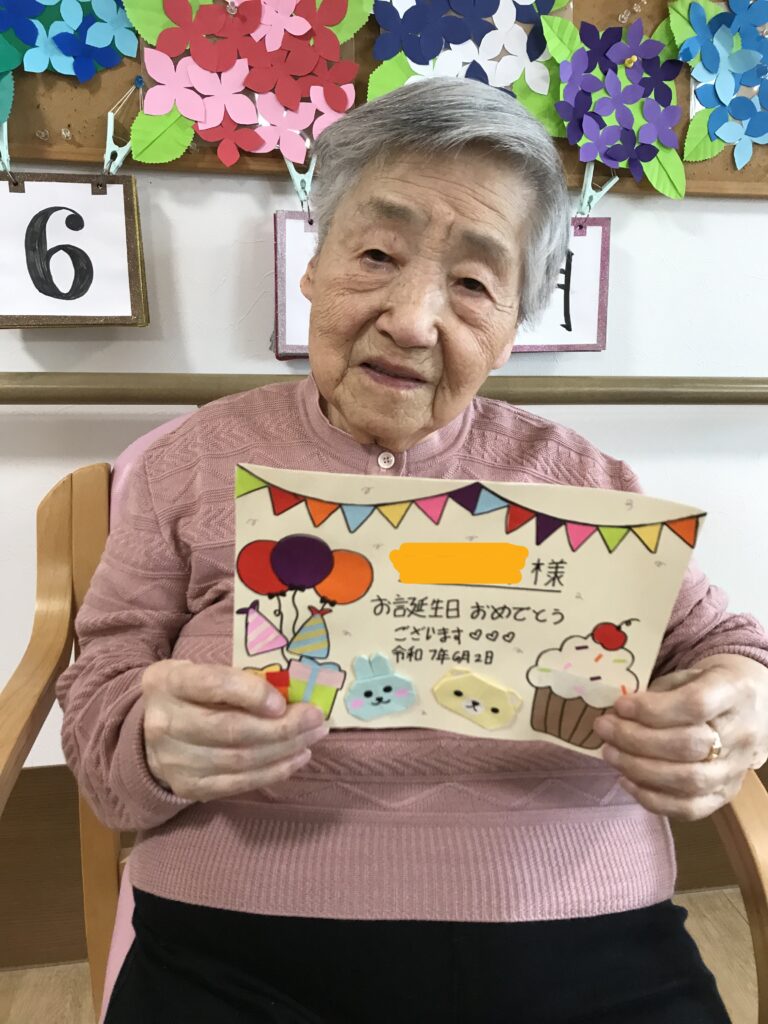 6 月
様
お誕生日 おめでとう
ございます♡♡♡
令和 7年6月2日